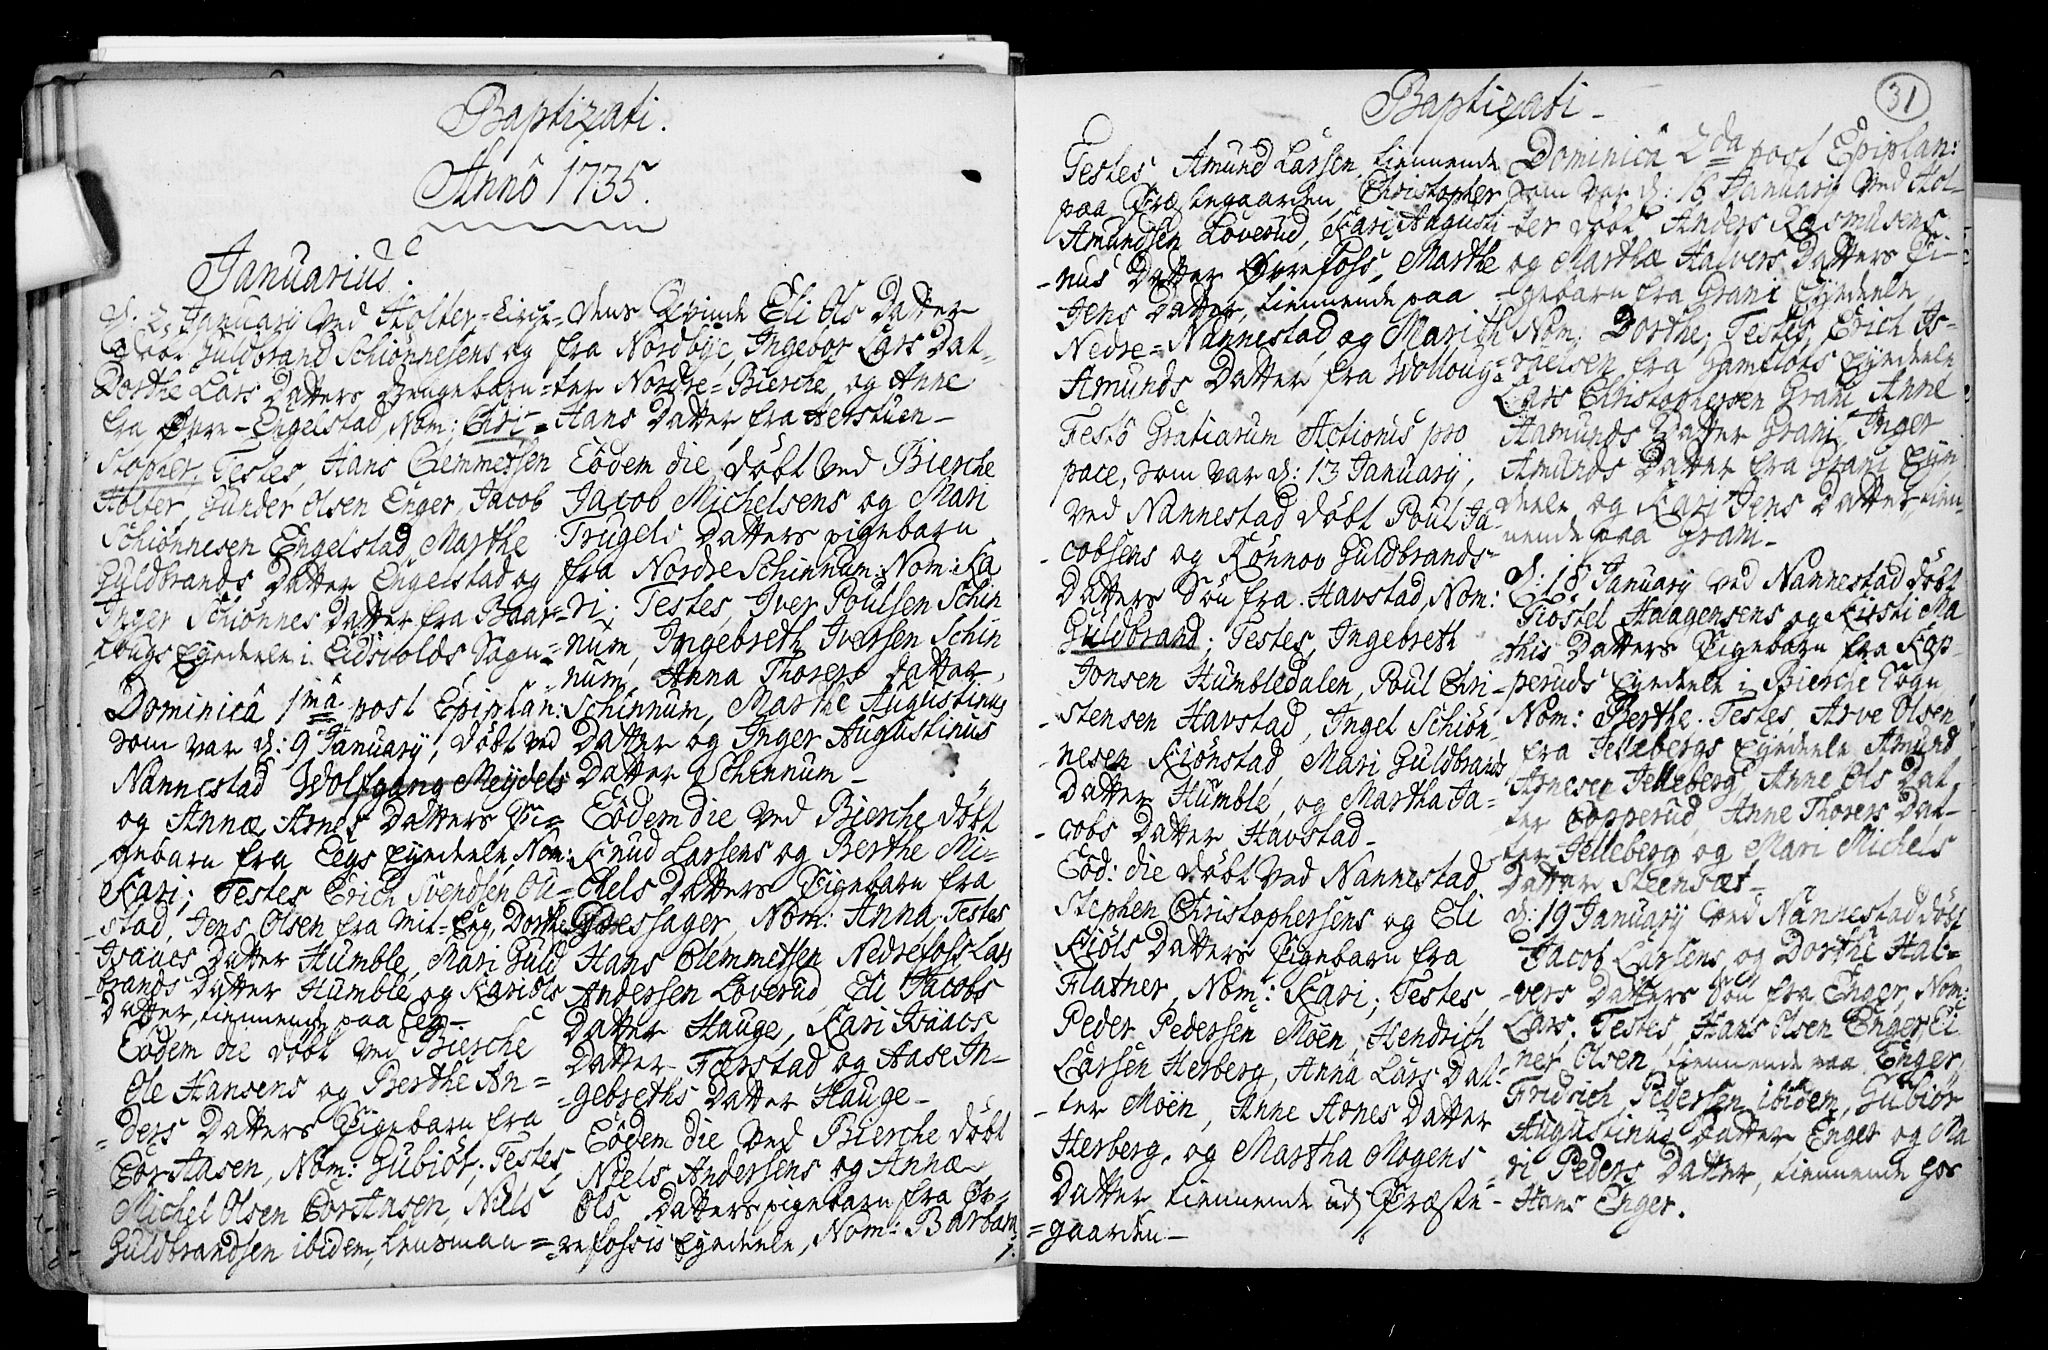 Baptizati.
Anno 1735.
Januarius.
d: 2 Januarij ved Holter-Kirche
döbt Guldbrand Schiönnesens og
Dorthe Lars Datters drengebarn
fra Øvre-Engelstad, Nom: Chri-
stopher, Testes, Hans Clemmetsen
Holter, Gunder Olsen Enger, Jacob
Schiönnesen Engelstad, Marthe
Guldbrands Datter Engelstad og
Inger Schiönnes Datter fra Baar-
lougs Eyedeele i Eidsvolds Sogn
Dominica 1mâ post Epiphan:
som var d: 9 January, döbt ved
Nannestad Wolfgang Meydels
og Annæ Arnes Datters Pi-
gebarn fra Eegs Eyedeele, Nom:
Kari; Testes Erich Svendsen Ou-
stad, Jens Olsen fra Mit-Eeg, Dorthe
Isaacs Datter Humble, Mari Guld
brands Datter Humble og Kari Ols
Datter, tiennende paa Eeg.
Eodem die döbt ved Bierche
Ole Hansens og Berthe An-
ders Datters Pigebarn fra
Corstasen, Nom: Gubiör; Testes,
Michel Olsen Corstasen, Niels
Guldbrandsen ibidem, Lensman-
dens Qvinde Eli Ols Datter
fra Nordbye, Ingebor Lars Dat-
ter Nordre-Bierche, og Anne
Hans Datter fra Herstuen-
Eodem die döbt ved Bierche
Jacob Michelsens og Mari
Trugels Datters pigebarn
fra Nordre Schinnum: Nom: Ka
ri: Testes, Iver Poulsen Schin
num, Ingebreth Iversen Schin
num, Anna Thorers Datter
Schinnum, Marthe Augustinus
Datter og Inger Augustinus
Datter Schinnum-
Eodem die ved Bierche döbt
Knud Larsens og Berthe Mi-
chels Datters Pigebarn fra
Nom: Anna, Testes
Hans Clemmetsen Nedrefoss, Lars
Andersen Loverud, Eli Jacobs
Datter Hauge, Kari Isaacs
Datter Færstad og Aase In-
gebreths Datter Hauge-
Eodem die ved Bierche döbt
Niels Andersens og Annæ
Ols Datters pigebarn fra Øv-
refossis Eyedeele, Nom: Barbara
Baptizati-
31
Testes, Amund Larsen, tiennende
paa Præstegaarden, Christopher
Amundsen Loverud, Kari Augusti
nus Datter Øvrefoss, Marthe
Jens Datter, tiennende paa
Nedre-Nannestad, og Marith
Amunds Datter fra Wolloug-
Festo Gratiarum Actionis pro
pace, som var d: 13 January,
ved Nannestad döbt Poul Ja-
cobsens og Rönnov Guldbrands-
Datters Sön fra Havstad, Nom:
Guldbrand; Testes, Ingebreth
Jonsen Humbledalen, Poul Chri-
stensen Havstad, Ingel Schiön-
nesen Kiönstad, Mari Guldbrands
Datter Humble, og Martha Ja-
cobs Datter Havstad-
Eod: die döbt ved Nannestad
Stephen Christophersens og Eli
Kiöls Datters Pigebarn fra
Flatner, Nom: Kari; Testes,
Peder Pedersen Moen, Hendrich
Larsen Herberg, Anna Lars Dat-
ter Moen, Anne Arnes Datter
Herberg, og Martha Mogens
Datter tiennende ud Præste-
gaarden-
Dominicâ 2da post Epiphan:
som var d: 16 January ved Hol-
ter döbt Anders Rasmusens
og Marthæ Halvers Datters Pi-
gebarn fra Grani Eyedeele,
Nom: Dorthe; Testes, Erich Is-
raelsen fra Hamelots Eyedeele
Lars Christophersen Grani, Anne
Aamunds Datter Grani, Inger
Amunds Datter fra Grani Eye
deele og Kari Jens Datter tien-
nende paa Grani-
d: 18 January ved Nannestad döbt
Kiostel Haagensens og Kirsti Ma
this Datters Pigebarn fra Kop-
peruds Eyedeele i Bierche Sogn
Nom: Berthe. Testes, Arve Olsen
fra Jellebergs Eyedeele Amund
Arnesen Jelleberg, Anne Ols Dat-
ter Copperud, Anne Thorers Dat-
ter Jelleberg og Mari Michels
Datter Steensæt-
d: 19 January ved Nannestad döbt
Jacob Larsens og Dorthe Hal-
vers Datters Sön fra Enger, Nom:
Lars. Testes, Hans Olsen Enger, Ei
ner Olsen tiennende paa Enger,
Fridrich Pedersen ibidem, Gubiör
Augustinus Datter Enger og Ma
ri Peders Datter, tiennende hos
Hans Enger.